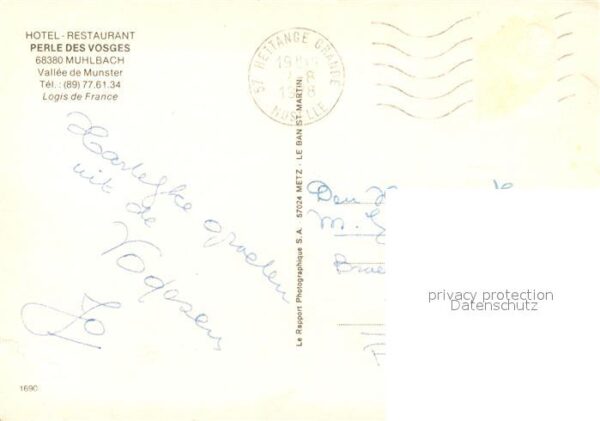 HOTEL - RESTAURANT
PERLE DES VOSGES
68380 MUHLBACH
Vallée de Munster
Tél.: (89) 77.61.34
Logis de France
57 HETTANGE GRANDE
MOSELLE
Hartelijke groeten
uit de
Vogesen
Jo
Le Rapport Photographique S.A. 57024 METZ - LE BAN ST-MARTIN
Den
M.
privacy protection
Datenschutz
1690